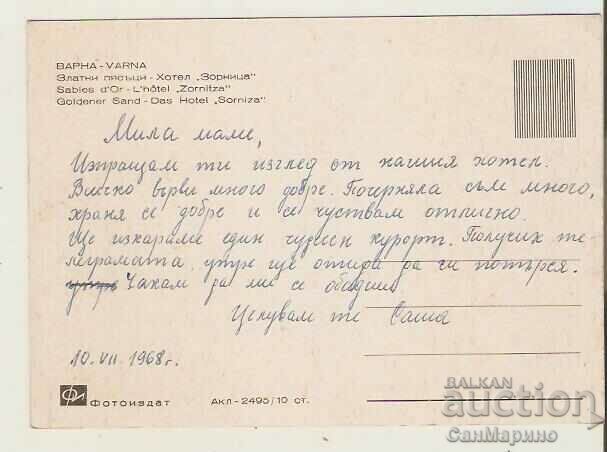 ВАРНА - VARNA
Златни пясъци - Хотел „Зорница"
Sables d'Or - L'hôtel „Zornitza"
Goldener Sand - Das Hotel „Sorniza"
Мила маме,
Изпращам ти изглед от нашия хотел.
Всичко върви много добре. Почерняла съм много,
храня се добре и се чуствам отлично.
Ще изкараме един чудесен курорт. Получих те
леграмата, утре ще отида да си потърся.
утре Чакам да ми се обадиш.
Целувам те Саша
10. VII. 1968 г.
Фотоиздат
Акл - 2495/10 ст.
BALKAN
auction
СанМарино